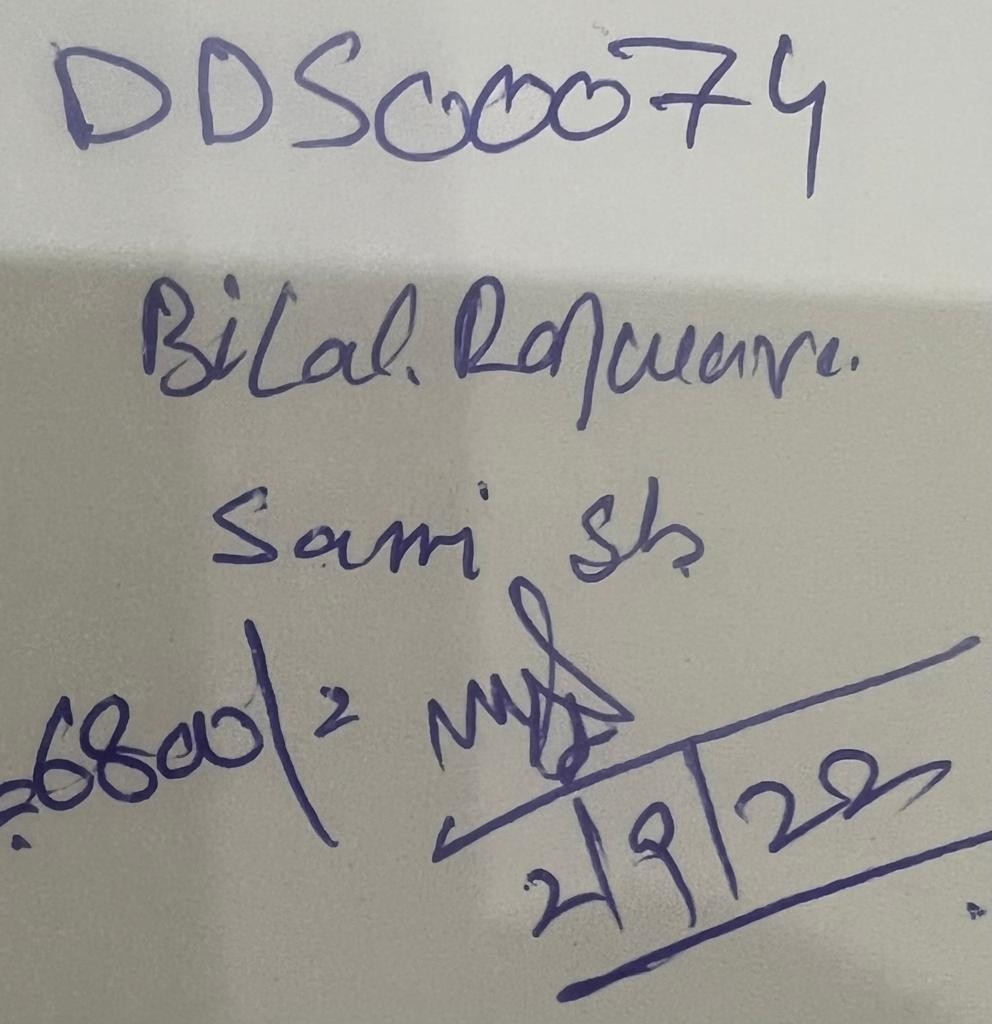 DDS00074
Bilal. Rajware.
Sami Sb.
6800/=
2/9/22